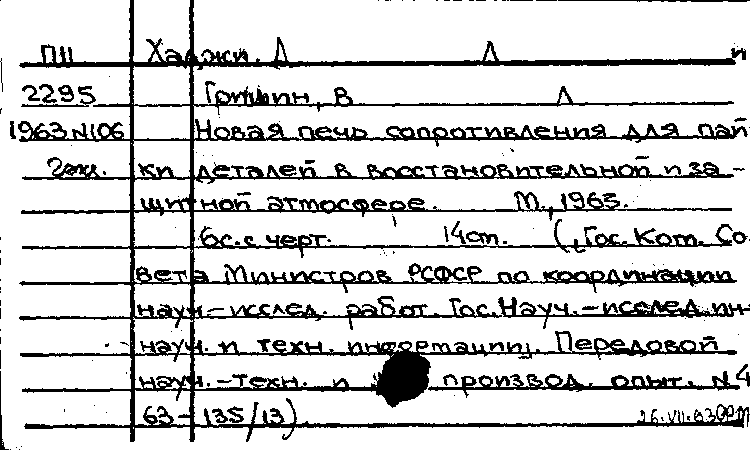 ПII Хаджи. Д Л и
2295 Гришин, В Л
1963 N106 Новая печь сопротивления для пай
2экз. ки деталей в восстановительной и за-
щитной атмосфере. М., 1963.
6с. с черт. 14см. (Гос. Ком. Со
вета Министров РСФСР по координации
науч-исслед. работ. Гос. Науч.-исслед. ин-
науч. и техн. информации. Передовой
науч.-техн. и производ. опыт. N4
63-135/13) 26.VII.63